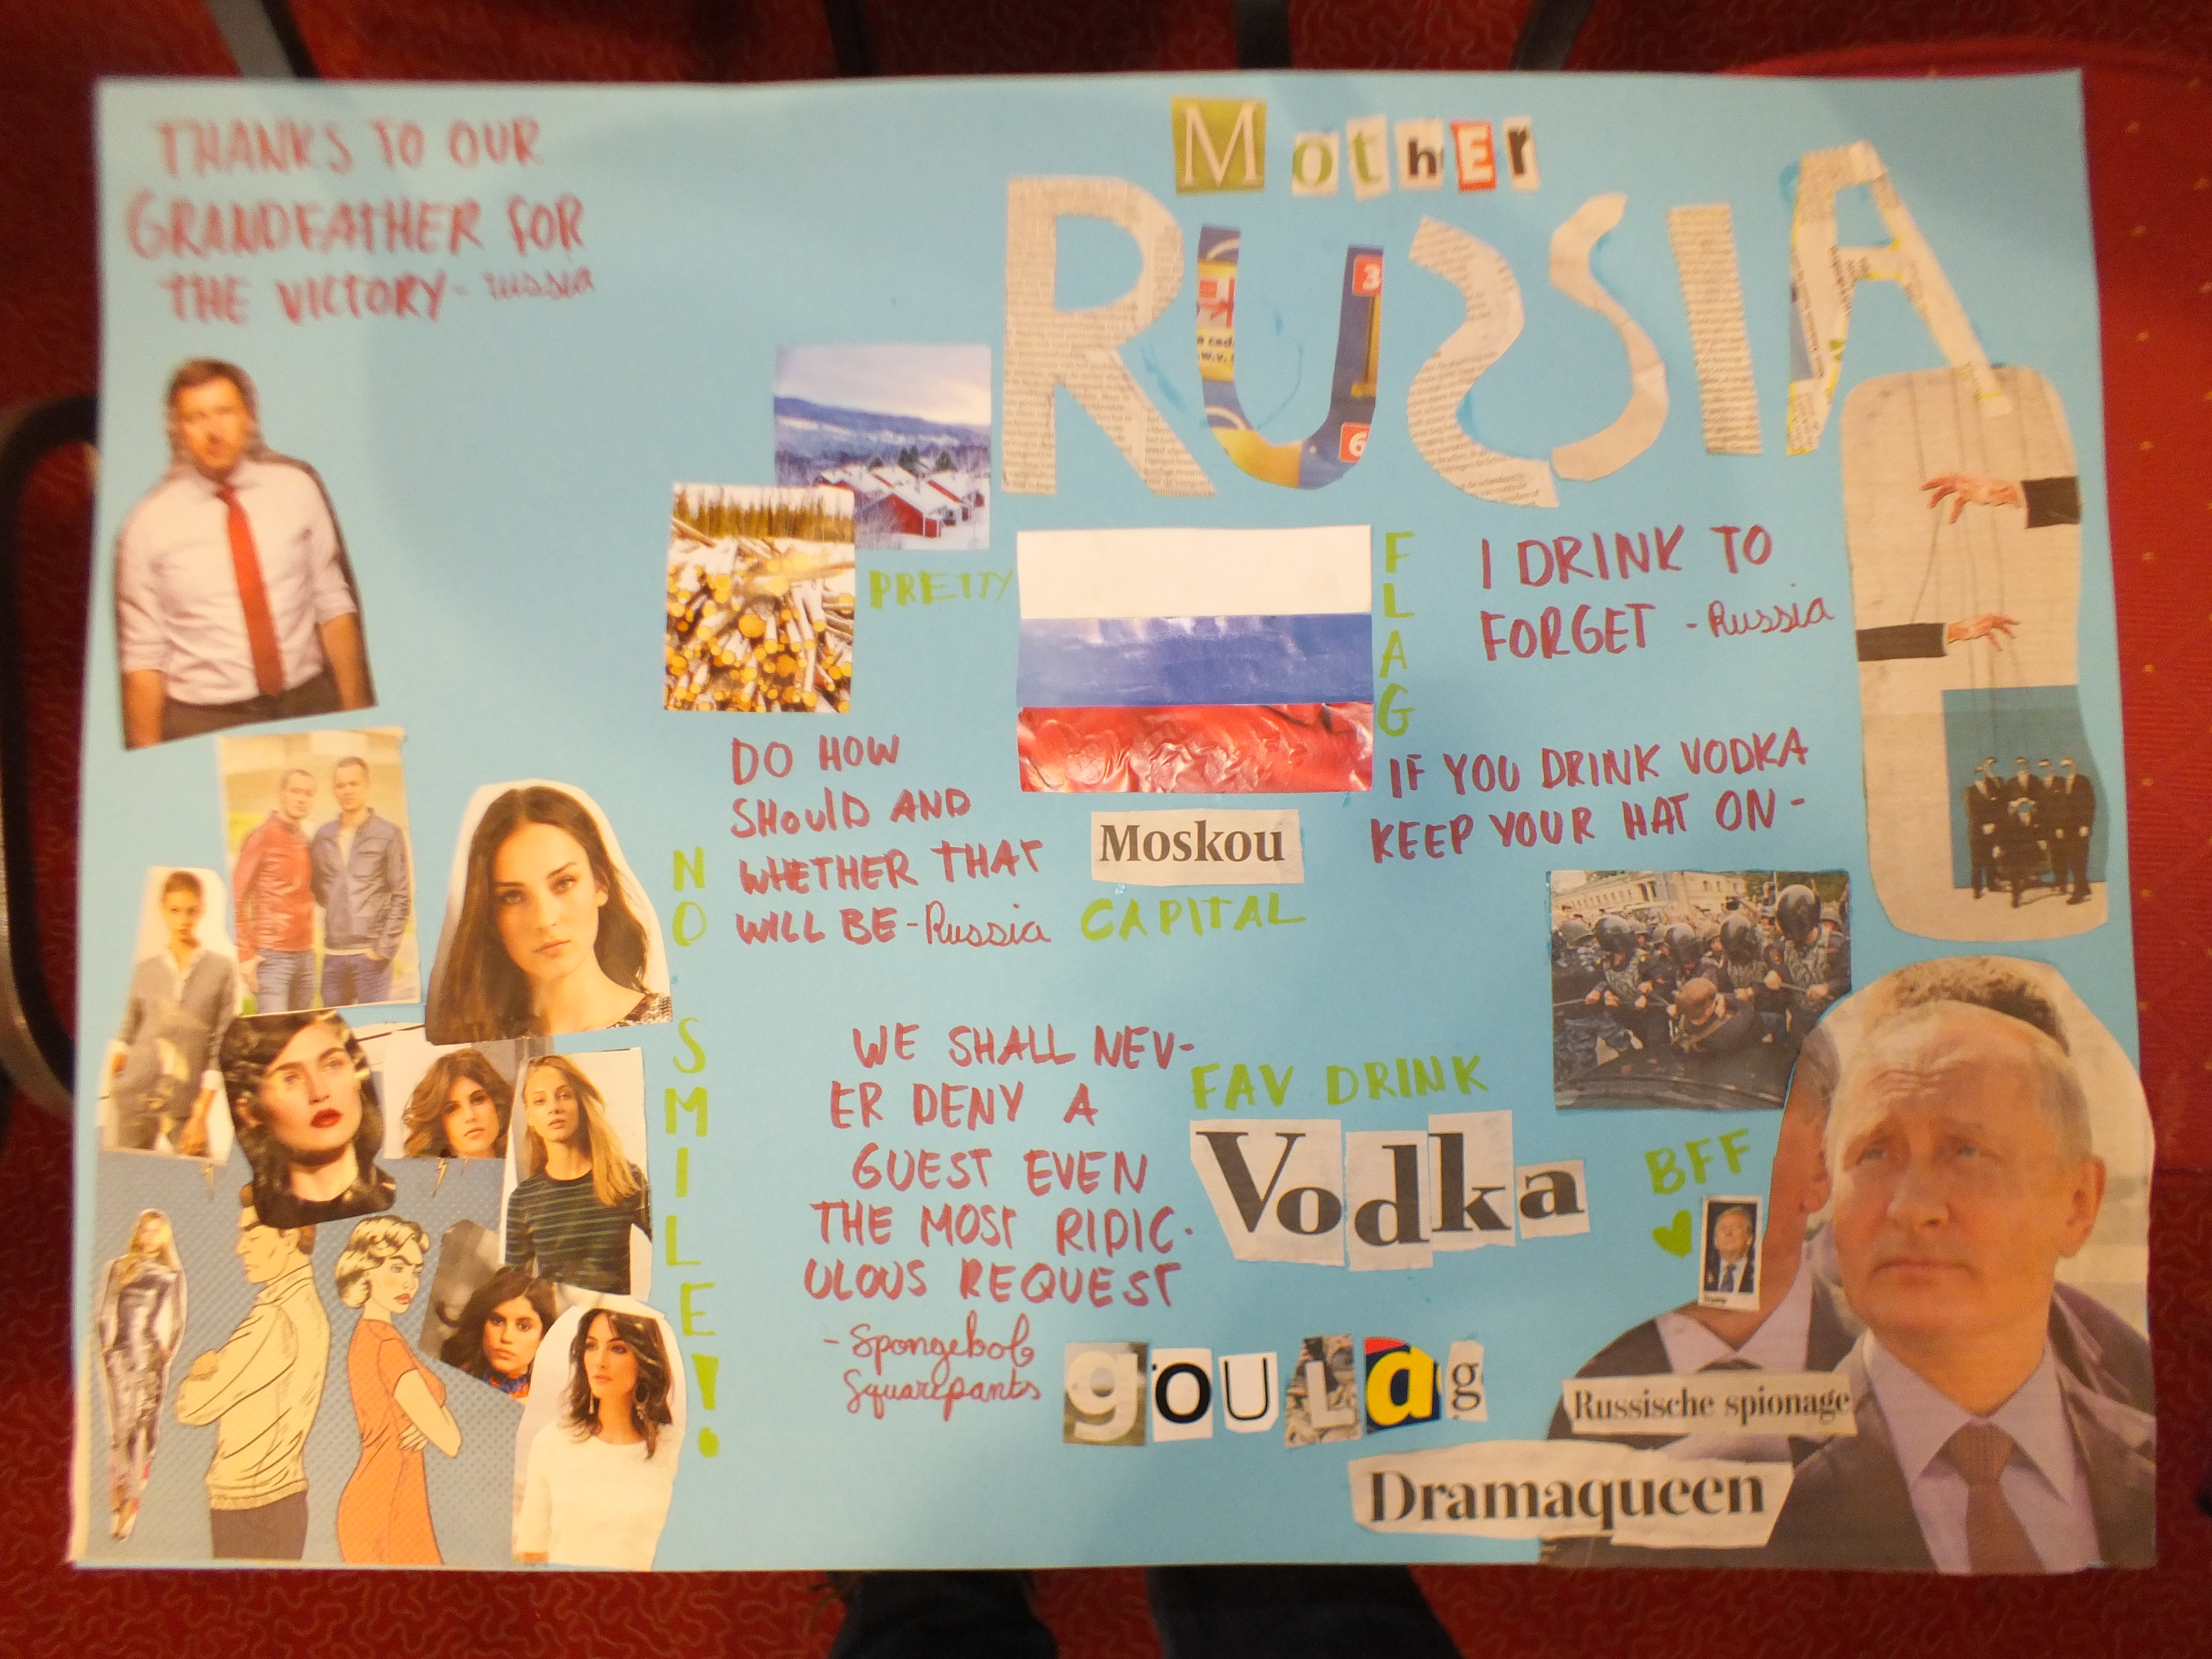 THANKS TO OUR
GRANDFATHER FOR
THE VICTORY - russia
Mother
RUSSIA
3
6
PRETTY
FLAG
I DRINK TO
FORGET - Russia
DO HOW
SHOULD AND
WHETHER THAT
WILL BE - Russia
Moskou
CAPITAL
IF YOU DRINK VODKA
KEEP YOUR HAT ON -
NO SMILE!
WE SHALL NEV-
ER DENY A
GUEST EVEN
THE MOST RIDIC-
ULOUS REQUEST
- Spongebob
Squarepants
FAV DRINK
Vodka
BFF
goulag
Russische spionage
Dramaqueen